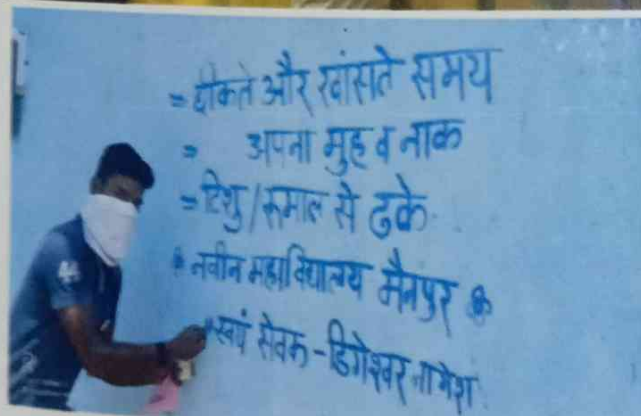 = छीकते और खांसते समय
= अपना मुह व नाक
= टिशु / रूमाल से ढके
* नवीन महाविद्यालय मैनपुर *
* स्वयं सेवक - डिगेश्वर नागेश